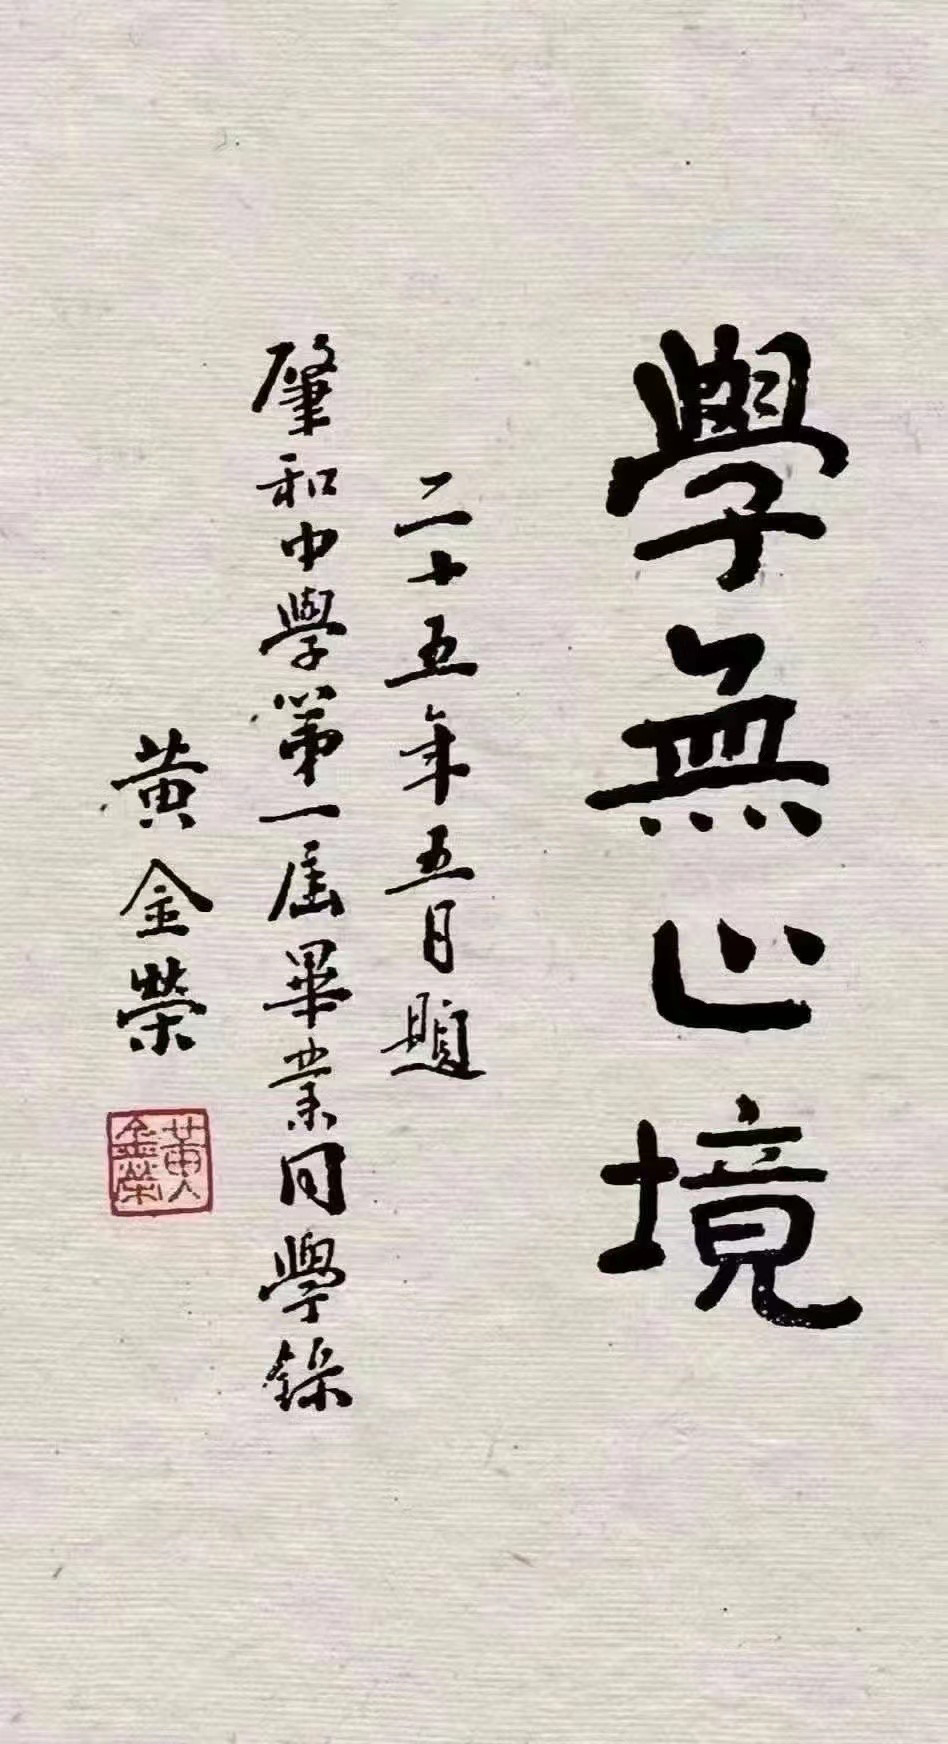 學無止境
二十五年五月題
肇和中學第一屆畢業同學錄
黃金榮
黃金榮